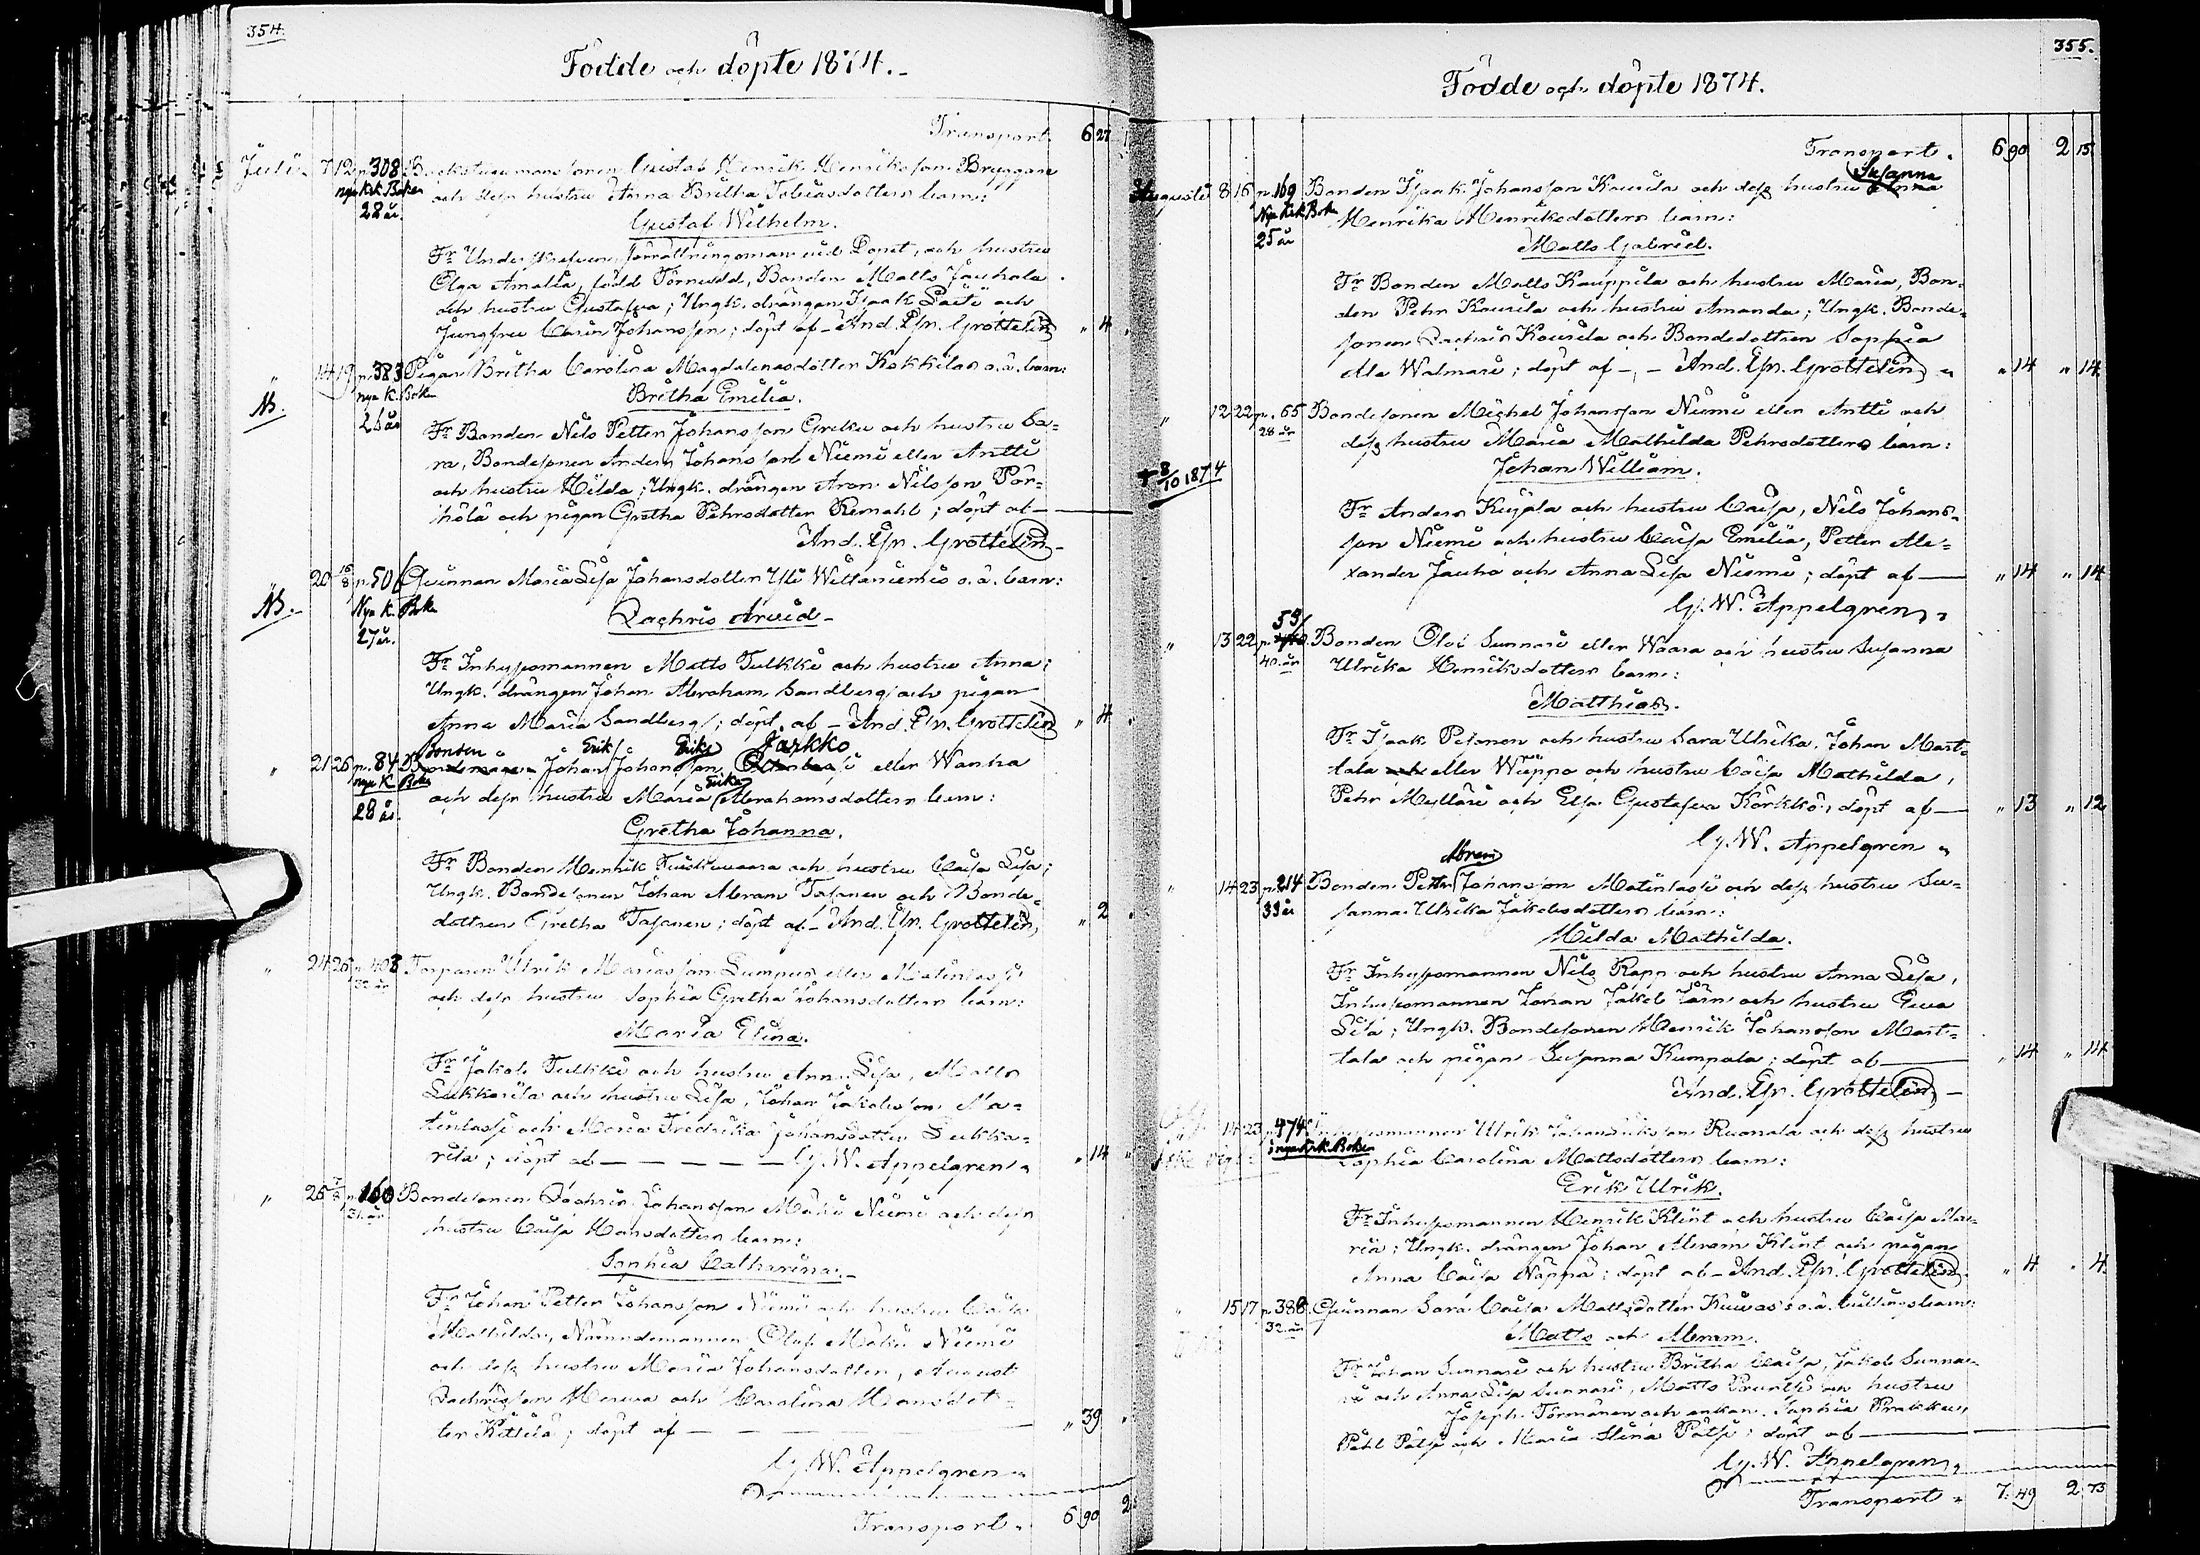 354.
Födde och döpte 1874.
Transport. 6 27
Julii 7 12 p. 308 Gustaf Henrik Henriksson Bryggare
nya Kyrk. Boken och dess hustru Anna Britha Tobiasdotters barn:
28 år. Gustaf Wilhelm.
Fr förrättningsman vid Tornet, och hustru
Olga Amalia, född Törnudd, Bonden Matts Jauhola
och hustru Gustafva; Ungk. drängen Isaak och
Jungfru Johansson; döpt af And. Efr. Grottelin „ 4
„ 14 19 p. 383 Pigan Britha Carolina Magdalenasdotter Kokkilas o. ä. barn:
nya K. Boken Britha Emilia.
Fr Bonden Nils Petter Johansson och hustru Ca=
ra, Bondesonen Anders Johansson Niemi eller Antti
och hustru Hilda; Ungk. drängen Aron Nilsson Pör=
hölä och pigan Gretha Pehrsdotter Remahl; döpt af —
And. Efr. Grottelin
20 16/8 p. 50 Qvinnan Maria Lisa Johansdotter Yli o. ä. barn:
Nya K. Boken Zachris Arvid
27 år.
Fr Inhysomannen Matts Tulkki och hustru Anna;
Ungk. drängen Johan Abraham Sandberg och pigan
Anna Maria Sandberg; döpt af — And. Efr. Grottelin „ 4
Bonden Erik Eriks Jarkko
„ 21 26 p. 84 Johan Johansson eller Wanha
nya K. Boken och dess hustru Maria Erika Abrahamsdotters barn:
28 år. Gretha Johanna.
Fr Bonden Henrik och hustru Caisa Lisa;
Ungk. Bondesonen Johan Abram Tasanen och Bonde=
dottren Gretha Tasanen; döpt af — And. Efr. Grottelin, „ 2
„ 24 26 p. 403 Torparen Ulrik Mariasson Lumpus eller Matinlassi
och dess hustru Sophia Gretha Johansdotters barn:
Maria Elina.
Fr Jakob Tulkki och hustru Anna Lisa, Matts
Lukkarila och hustru Lisa, Johan Jakobsson Ma=
tinlassi och Maria Fredrika Johansdotter Lukka=
rila; döpt af — — — — G. W. Appelgren „ „ 14
„ 25 p. 160 Bondesonen Zachris Johansson Mäki Niemi och dess
31 år hustru Caisa Hansdotters barn:
Sophia Catharina.
Fr Johan Petter Johansson Niemi och hustru Caisa
Mathilda, Nämndemannen Olof Mäki Niemi
och dess hustru Maria Johansdotter, August
Zachrisson och Carolina Hansdot=
ter Kittilä; döpt af — „ 39
G. W. Appelgren „
Transport „ 6 90 2

355.
Födde och döpte 1874.
Transport. 6 90 2 15
Augusti 8 16 p. 169 Bonden Isaak Johansson Kourila och dess hustru Susanna
Nya Kyrk. Boken Henrika Henriksdotters barn:
25 år Matts Gabriel.
Fr Bonden Matts Kauppila och hustru Maria, Bon=
den Pehr Kourila och hustru Amanda; Ungk. Bonde=
sonen Zachris Kourila och Bondedottren Sophia
Ala Walmari; döpt af — And. Efr. Grottelin „ „ 14 „ 14
„ 12 22 p. 65 Bondesonen Michel Johansson Niemi eller Antti och
28 år dess hustru Maria Mathilda Pehrsdotters barn:
+ 8/10 1874 Johan William.
Fr Anders Kujala och hustru Caisa, Nils Johans=
son Niemi och hustru Caisa Emilia, Petter Ale=
xander Jauho och Anna Lisa Niemi; döpt af — „ 14 „ 14
G. W. Appelgren „
59/
„ 13 22 p. Bonden Olof Sunnari eller Waara och hustru Susanna
40 år Ulrika Henriksdotters barn:
Matthias.
Fr Isaak Pesonen och hustru Sara Ulrika, Johan Mart=
tala och eller Wiippo och hustru Caisa Mathilda,
Pehr Mylläri och Elsa Gustafva Körkkö; döpt af — „ 13 „ 12
G. W. Appelgren „
Abram
„ 14 23 p. 214 Bonden Petter Johansson Matinlassi och dess hustru Su=
33 år sanna Ulrika Jakobsdotters barn:
Hilda Mathilda.
Fr Inhysomannen Nils Rapp och hustru Anna Lisa,
Inhysomannen Johan Jakob och hustru Eva
Lisa; Ungk. Bondesonen Henrik Johansson Mart=
tala och pigan Susanna Kumpula; döpt af — „ 14 „ 14
And. Efr. Grottelin —
14 23 p. 474 Inhysomannen Ulrik Ruonala och dess hustru
i nya Kyrk. Boken Sophia Carolina Mattsdotters barn:
Erik Ulrik.
Fr Inhysomannen Henrik Klint och hustru Caisa Ma=
ria; Ungk. drängen Johan Abram Klint och pigan
Anna Caisa Näppä; döpt af — And. Efr. Grottelin. „ 4 „ 4
15 17 p. 388 Qvinnan Sara Caisa Mattsdotter o. ä. tvillingsbarn:
32 år Matts och Abram.
Fr Johan Sunnari och hustru Britha Caisa, Jakob Sunna=
ri och Anna Lisa Sunnari, Matts och hustru
Joseph Törmänen och enkan Sophia
Påhl och Maria Stina; döpt af —
G. W. Appelgren „
Transport „ 7 49 2 73